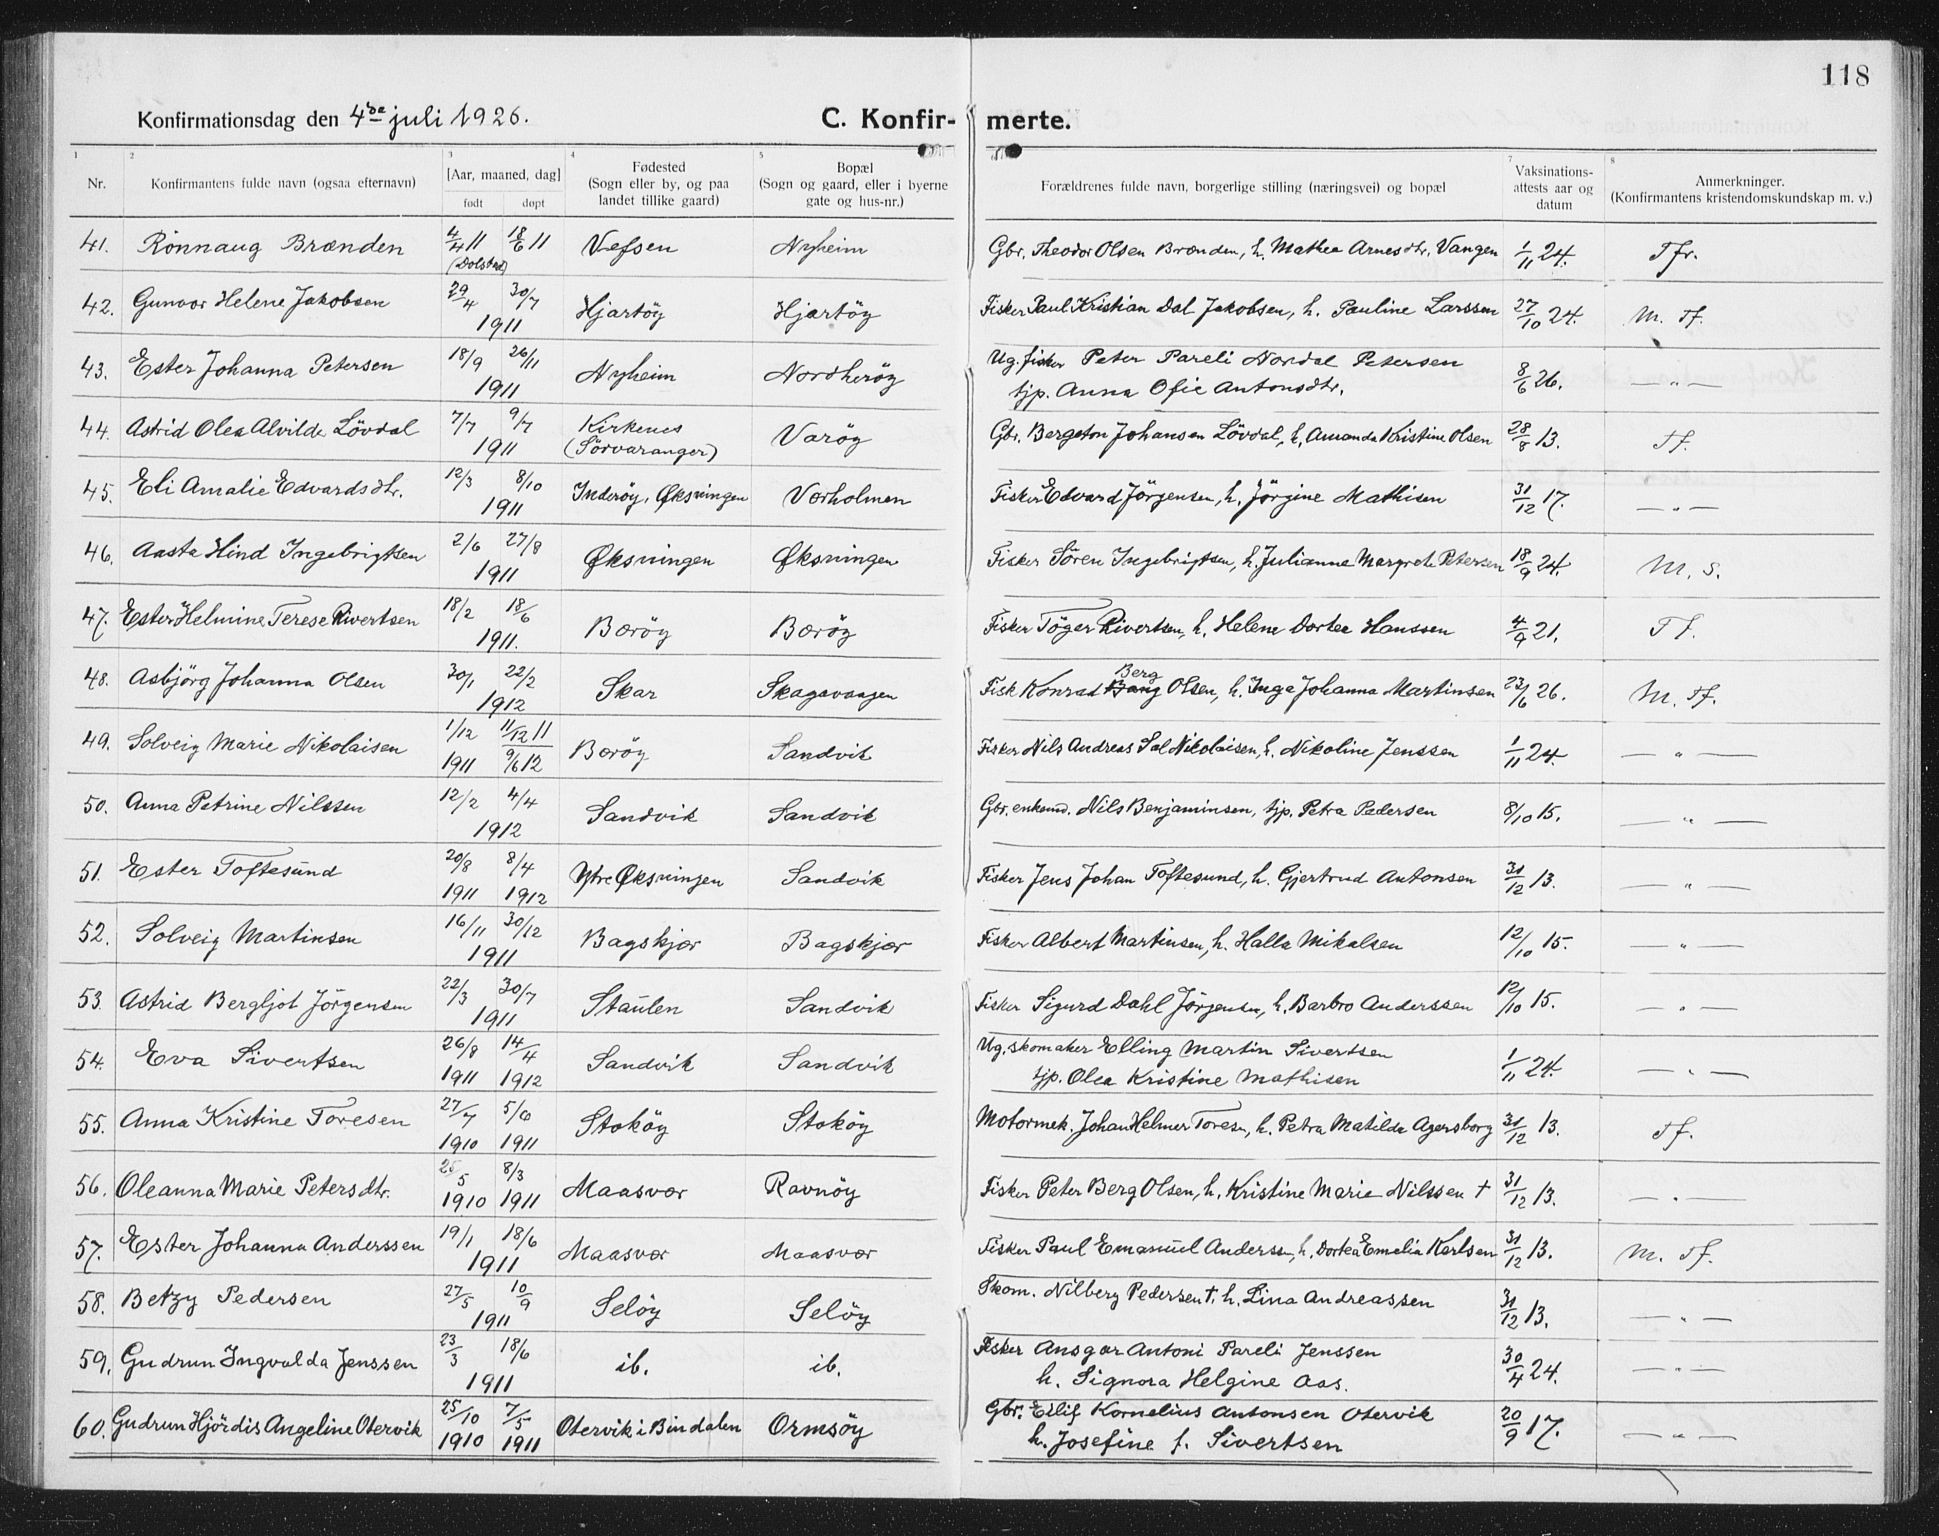 118
Konfirmationsdag den 4de juli 1926. C. Konfir- merte.
1 2 3 4 5 7 8
Nr. Konfirmantens fulde navn (ogsaa efternavn) [Aar, maaned, dag] født døpt Fødested (Sogn eller by, og paa landet tillike gaard) Bopæl (Sogn og gaard, eller i byerne gate og hus-nr.) Forældrenes fulde navn, borgerlige stilling (næringsvei) og bopæl Vaksinations-attests aar og datum Anmerkninger. (Konfirmantens kristendomskundskap m. v.)
41. Rönnaug Brænden 4/4 11 18/6 11 (Dolstad) Vefsen Nyheim Gbr. Theodor Olsen Brænden, h. Mathea Arnesdtr. Vangen 1/11 24. Tfr.
42. Gunvor Helene Jakobsen 29/4 30/7 1911 Hjartöy Hjartöy Fisker Paul Kristian Dal Jakobsen, h. Pauline Larssen 27/10 24. M. Tf.
43. Ester Johanna Petersen 18/9 26/11 1911 Nyheim Nordheröy Ug. fisker Peter Pareli Nordal Petersen
tjp. Anna Ofie Antonsdtr. 8/6 26. — " —
44. Astrid Olea Alvilde Lövdal 7/7 9/7 1911 Kirkenes (Sörvaranger) Varöy Gbr. Bergeton Johansen Lövdal, h. Amanda Kristine Olsen 28/8 13. Tf.
45. Eli Amalie Edvardsdtr. 12/3 8/10 1911 Inderöy, Øksningen Vorholmen Fisker Edvard Jörgensen, h. Jörgine Mathisen 31/12 17. — " —
46. Aasta Hind Ingebrigtsen 2/6 27/8 1911 Øksningen Øksningen Fisker Sören Ingebrigtsen, h. Julianne Margrete Petersen 18/9 24. M. S.
47. Ester Helmine Terese Rivertsen 18/2 18/6 1911. Bæröy Bæröy Fisker Töger Rivertsen, h. Helene Dortea Hanssen 4/9 21. Tf.
48. Asbjörg Johanna Olsen 30/1 22/2 1912 Skar Skagavaagen Fisk Konrad Bang Berg Olsen, h. Inga Johanna Martinsen 23/6 26. M. Tf.
49. Solveig Marie Nikolaisen 1/12 1911 11/12 11 9/6 12 Bæröy Sandvik Fisker Nils Andreas Sal Nikolaisen, h. Nikoline Jenssen 1/11 24. — " —
50. Anna Petrine Nilssen 12/2 4/4 1912 Sandvik Sandvik Gbr. enkemd. Nils Benjaminsen, tjp. Petra Pedersen 8/10 15. — " —
51. Ester Toftesund 20/8 1911 8/4 1912 Ytre Øksningen Sandvik Fisker Jens Johan Toftesund, h. Gjertrud Antonsen 31/12 13. — " —
52. Solveig Martinsen 16/11 30/12 1911 Bagskjær Bagskjær Fisker Albert Martinsen, h. Halla Mikalsen 12/10 15. — " —
53. Astrid Bergljot Jörgensen 22/3 30/7 1911 Staulen Sandvik Fisker Sigurd Dahl Jörgensen, h. Barbro Anderssen 12/10 15. — " —
54. Eva Sivertsen 26/8 1911 14/4 1912 Sandvik Sandvik Ug. skomaker Elling Martin Sivertsen
tjp. Olea Kristine Mathisen 1/11 24. — " —
55. Anna Kristine Toresen 27/7 1910 5/6 1911 Stoköy Stoköy Motormek. Johan Helmer Toresen, h. Petra Matilde Agersborg 31/12 13. Tf.
56. Oleanna Marie Petersdtr. 25/5 1910 8/3 1911 Maasvær Ravnöy Fisker Peter Berg Olsen, h. Kristine Marie Nilssen † 31/12 13. — " —
57. Ester Johanna Anderssen 19/1 18/6 1911 Maasvær Maasvær Fisker Paul Emanuel Anderssen, h. Dortea Emelia Karlsen 31/12 13. M. Tf.
58. Betzy Pedersen 27/5 10/9 1911 Selöy Selöy Skom. Nilberg Pedersen †. h. Lina Andreassen 31/12 13. — " —
59. Gudrun Ingvalda Jenssen 23/3 18/6 1911 ib. ib. Fisker Ansgar Antoni Pareli Jenssen
h. Signora Helgine Aas. 30/4 24. — " —
60. Gudrun Hjördis Angeline Otervik 25/10 1910 7/5 1911 Otervik i Bindalen Ormsöy Gbr. Eilif Kornelius Antonsen Otervik
h. Josefine f. Sivertsen 20/9 17. — " —